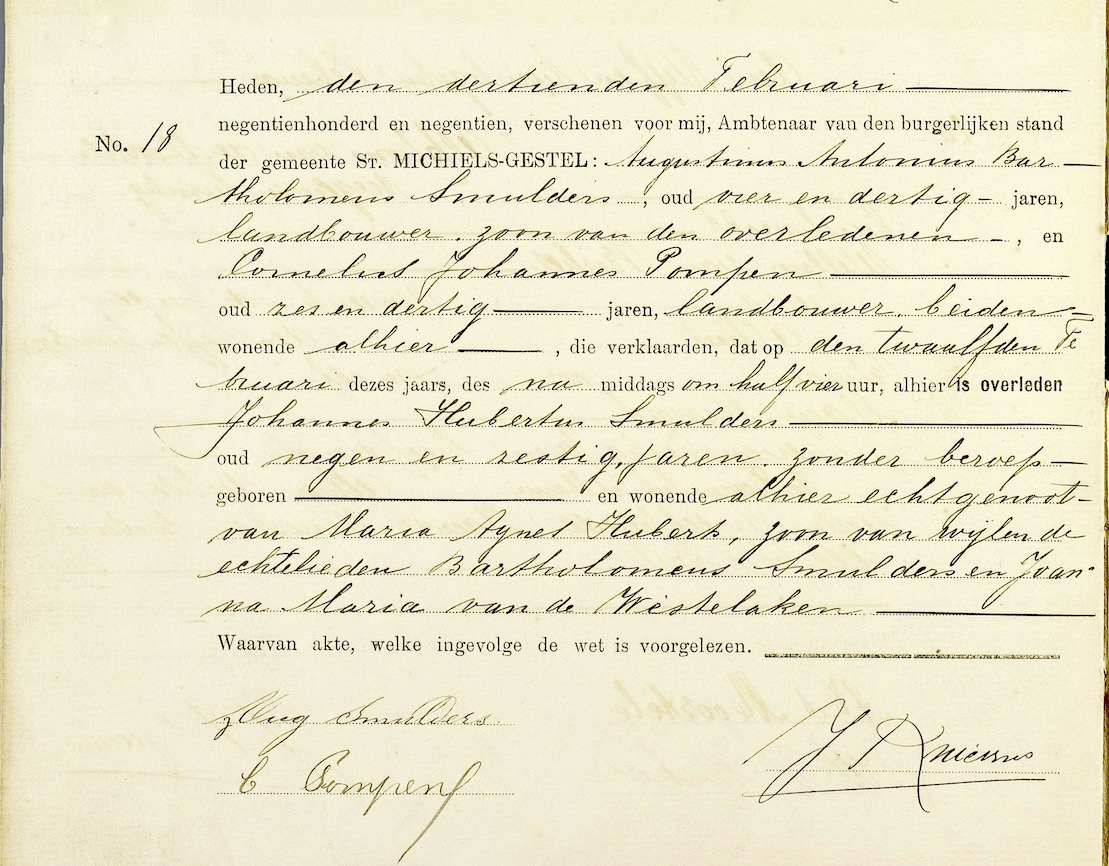 Heden, den dertienden Februari
negentienhonderd en negentien, verschenen voor mij, Ambtenaar van den burgerlijken stand
No. 18
der gemeente ST. MICHIELS-GESTEL: Augustinus Antonius Bar-
tholomeus Smulders, oud vier en dertig jaren,
landbouwer. zoon van den overledenen, en
Cornelis Johannes Pompen
oud zes en dertig jaren, landbouwer. beiden
wonende alhier, die verklaarden, dat op den twaalfden Fe
bruari dezes jaars, des na middags om half vier uur, alhier is overleden
Johannes Hubertus Smulders
oud negen en zestig, jaren. zonder beroep
geboren en wonende alhier echtgenoot
van Maria Agnes Huberts, zoon van wijlen de
echtelieden Bartholomeus Smulders en Joan-
na Maria van de Westelaken
Waarvan akte, welke ingevolge de wet is voorgelezen.
Aug Smulders.
C Pompen
J.